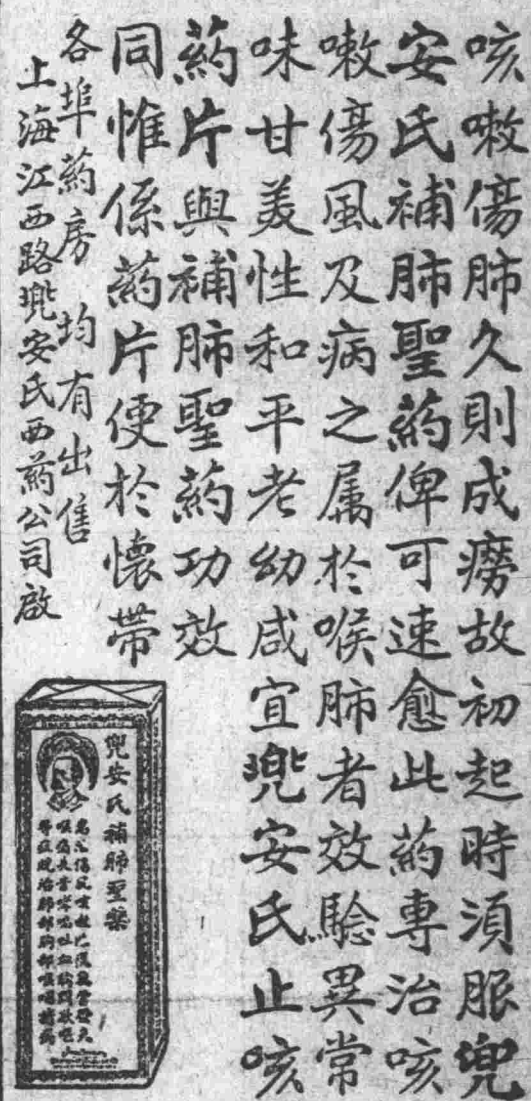 咳嗽傷肺久則成癆故初起時須服兜
安氏補肺聖药俾可速愈此药專治咳
嗽傷風及病之属於喉肺者效驗異常
味甘美性和平老幼咸宜兜安氏止咳
药片與補肺聖药功效
同惟係药片便於懷帶
各埠药房均有出售
上海江西路兜安氏西药公司啟
兜安氏補肺聖藥